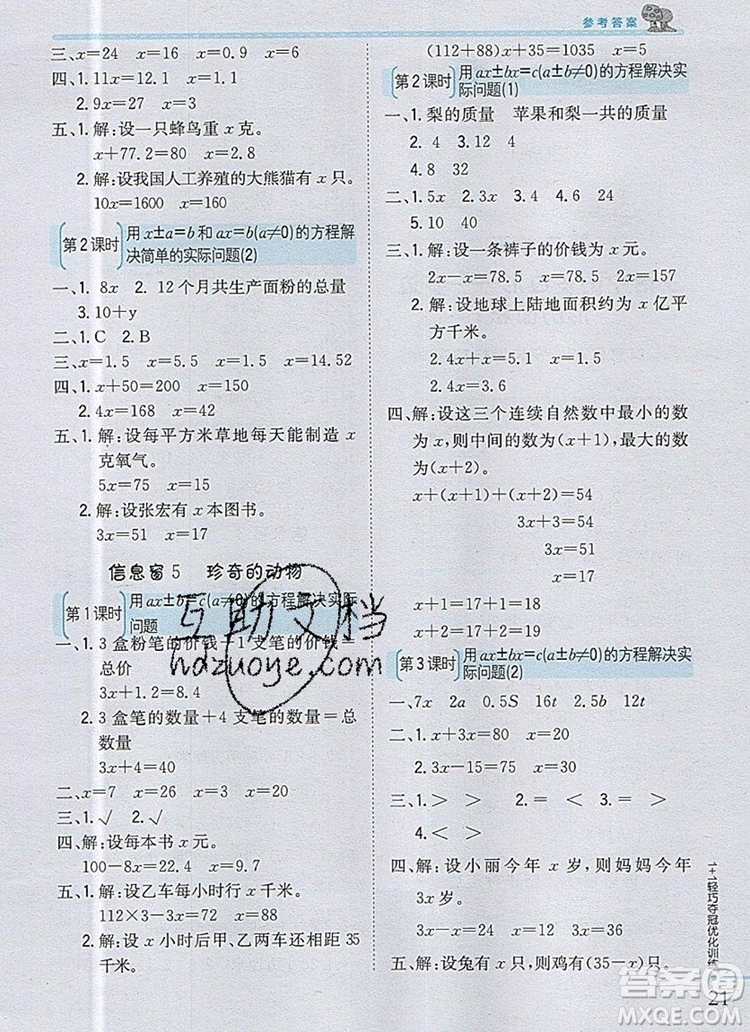 参考答案
三、x=24　x=16　x=0.9　x=6
四、1. 11x=12.1　x=1.1
2. 9x=27　x=3
五、1. 解:设一只蜂鸟重 x 克。
x+77.2=80　x=2.8
2. 解:设我国人工养殖的大熊猫有 x 只。
10x=1600　x=160
第2课时　用x±a=b和ax=b(a≠0)的方程解
决简单的实际问题(2)
一、1. 8x　2. 12个月共生产面粉的总量
3. 10+y
二、1. C　2. B
三、x=1.5　x=5.5　x=1.5　x=14.52
四、1. x+50=200　x=150
2. 4x=168　x=42
五、1. 解:设每平方米草地每天能制造 x
克氧气。
5x=75　x=15
2. 解:设张宏有 x 本图书。
3x=51　x=17
信息窗5　珍奇的动物
第1课时　用ax±b=c(a≠0)的方程解决实际
问题
一、1. 3盒粉笔的价钱+1支笔的价钱=
总价
3x+1.2=8.4
2. 3盒粉笔的数量+4支笔的数量=总
数量
3x+4=40
二、x=7　x=26　x=20
三、1. √　2. √
四、解:设每本书 x 元。
100-8x=22.4　x=9.7
五、1. 解:设乙车每小时行 x 千米。
112×3-3x=72　x=88
2. 解:设 x 小时后甲、乙两车还相距35
千米。
(112+88)x+35=1035　x=5
第2课时　用ax±bx=c(a±b≠0)的方程解决实
际问题(1)
一、1. 梨的质量　苹果和梨一共的质量
2. 4　4　3. 12　4
4. 8　32
二、1. 5　2. 15　3. 9　4. 40
三、1. 解:设一条裤子的价钱为 x 元。
2x-x=78.5　x=78.5
2. 解:设地球上陆地面积约为 x 亿平
方千米。
2.4x+x=5.1　x=1.5
2.4x=3.6
四、解:设这三个连续自然数中最小的数
为x,则中间的数为(x+1),最大的数
为(x+2)。
x+(x+1)+(x+2)=54
3x+3=54
3x=51
x=17
x+1=17+1=18
x+2=17+2=19
第3课时　用ax±bx=c(a±b≠0)的方程解决实
际问题(2)
一、7x　2a　0.5S　16t　t
二、1. x+3x=40　x=10
2. 3x-x=7　x=3.5
三、1. >　>　2. =　<　3. <　>
4. <　>
四、解:设小丽今年 x 岁,则妈妈今年
3x岁。
3x-x=24　x=12　3x=36
五、解:设兔有 x 只,则鸡有(35-x)只。
1+1轻巧夺冠优化训练
21
互助文档
hdzuoye.com
答案圈
MXQE.COM